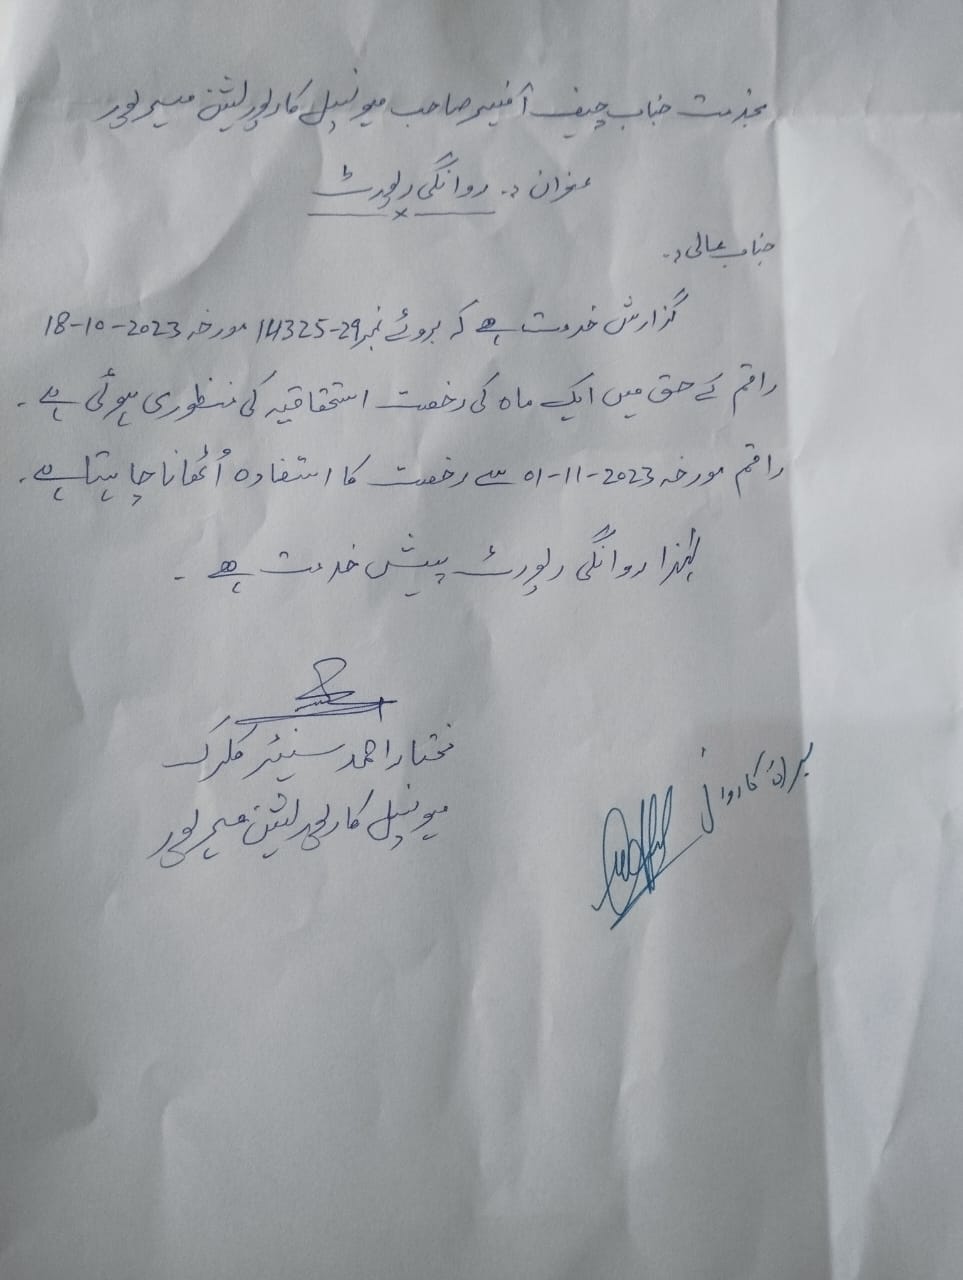 بخدمت جناب چیف آفیسر صاحب میونسپل کارپوریشن میرپور
عنوان :۔ روانگی رپورٹ
جناب عالی :۔
گزارش خدمت ہے کہ بروئے نمبر 29-14325 مورخہ 2023-10-18
راقم کے حق میں ایک ماہ کی رخصت استحقاقیہ کی منظوری ہوئی ہے ۔
راقم مورخہ 2023-11-01 سے رخصت کا استفادہ اُٹھانا چاہتا ہے ۔
لہٰذا روانگی رپورٹ پیش خدمت ہے ۔
مختار احمد سنیئر کلرک
میونسپل کارپوریشن میرپور
برائے کاروائی